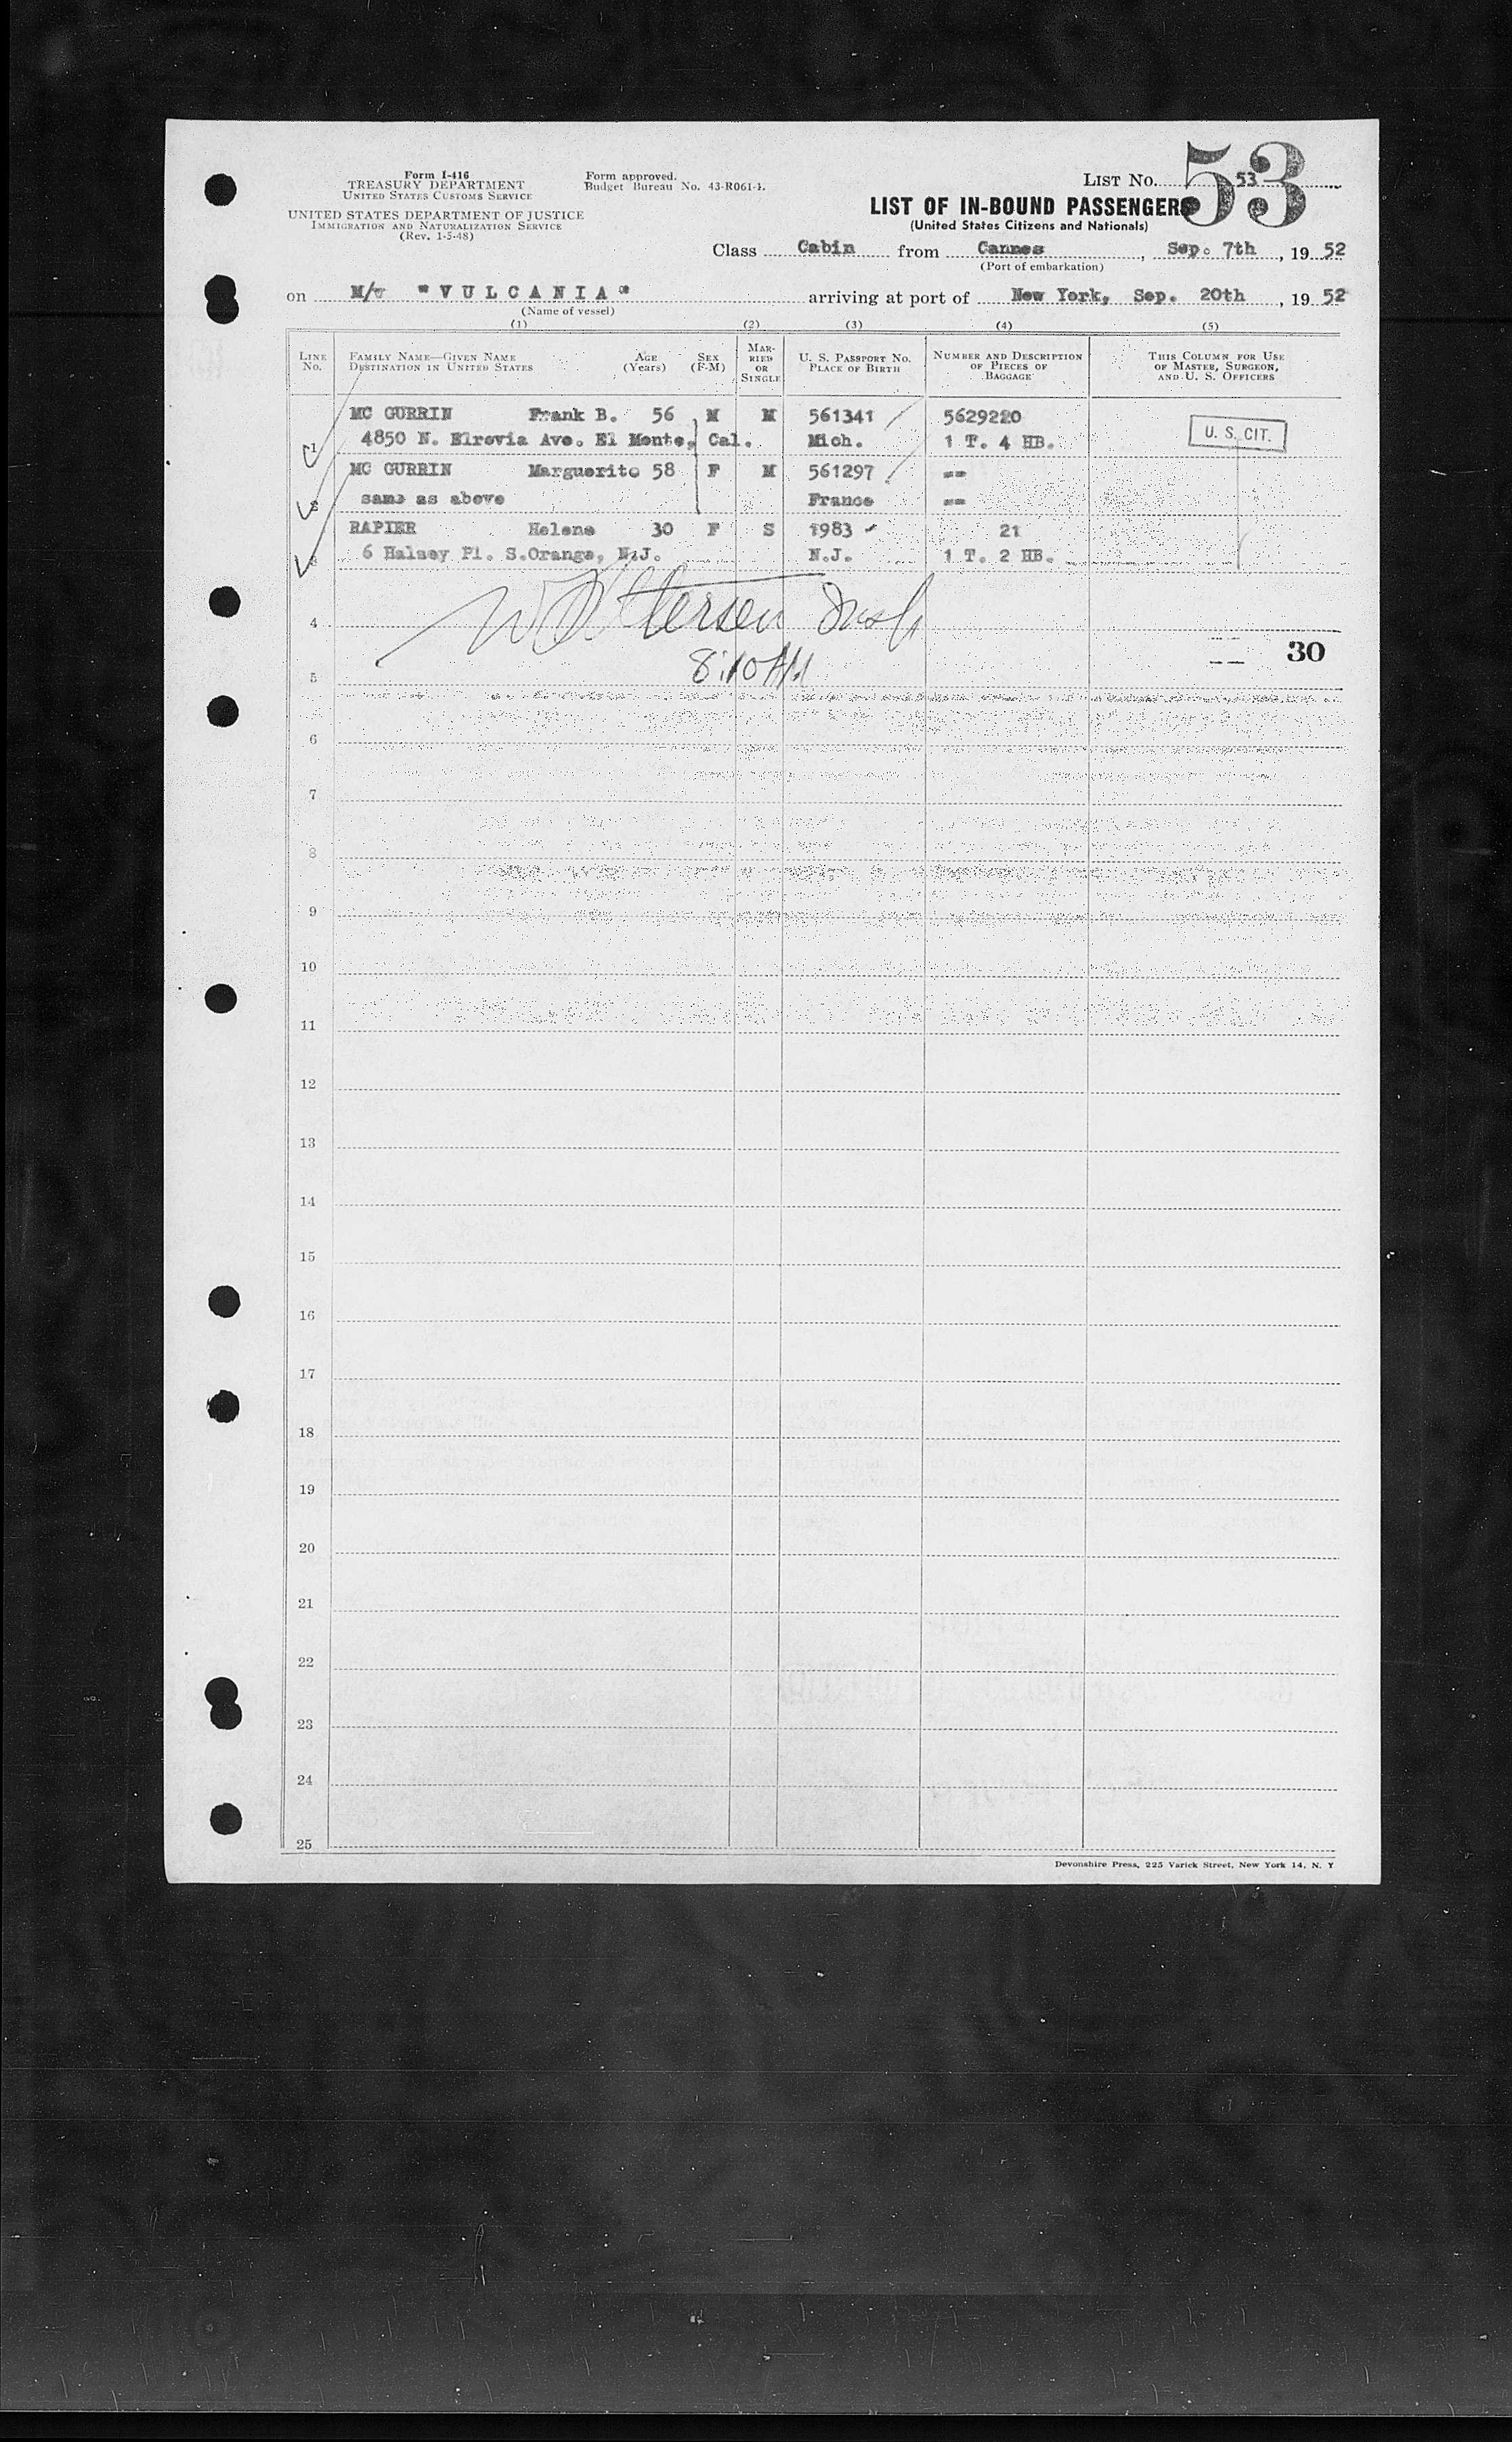 53
Form I-416
TREASURY DEPARTMENT
UNITED STATES CUSTOMS SERVICE
UNITED STATES DEPARTMENT OF JUSTICE
IMMIGRATION AND NATURALIZATION SERVICE
(Rev. 1-5-48)
Form approved.
Budget Bureau No. 43-R061-4.
LIST NO. 53
LIST OF IN-BOUND PASSENGERS
(United States Citizens and Nationals)
Class Cabin from Cannes, Sep. 7th, 19 52
(Port of embarkation)
on M/v "VULCANIA" arriving at port of New York, Sep. 20th, 19 52
(Name of vessel)
(1) (2) (3) (4) (5)
LINE NO.
FAMILY NAME—GIVEN NAME
DESTINATION IN UNITED STATES
AGE
(Years)
SEX
(F-M)
MAR-
RIED
OR
SINGLE
U. S. PASSPORT NO.
PLACE OF BIRTH
NUMBER AND DESCRIPTION
OF PIECES OF
BAGGAGE
THIS COLUMN FOR USE
OF MASTER, SURGEON,
AND U. S. OFFICERS
MC GURRIN Frank B. 56 M M 561341 5629220
1 4850 N. Elrovia Ave. El Monte, Cal. Mich. 1 T. 4 HB. U. S. CIT.
MC GURRIN Marguerite 58 F M 561297 --
2 same as above France --
RAPIER Helene 30 F S 1983 21
3 6 Halsey Pl. S.Orange, N.J. N.J. 1 T. 2 HB.
4
30
8:10 AM
5
6
7
8
9
10
11
12
13
14
15
16
17
18
19
20
21
22
23
24
25
Devonshire Press, 225 Varick Street, New York 14, N. Y